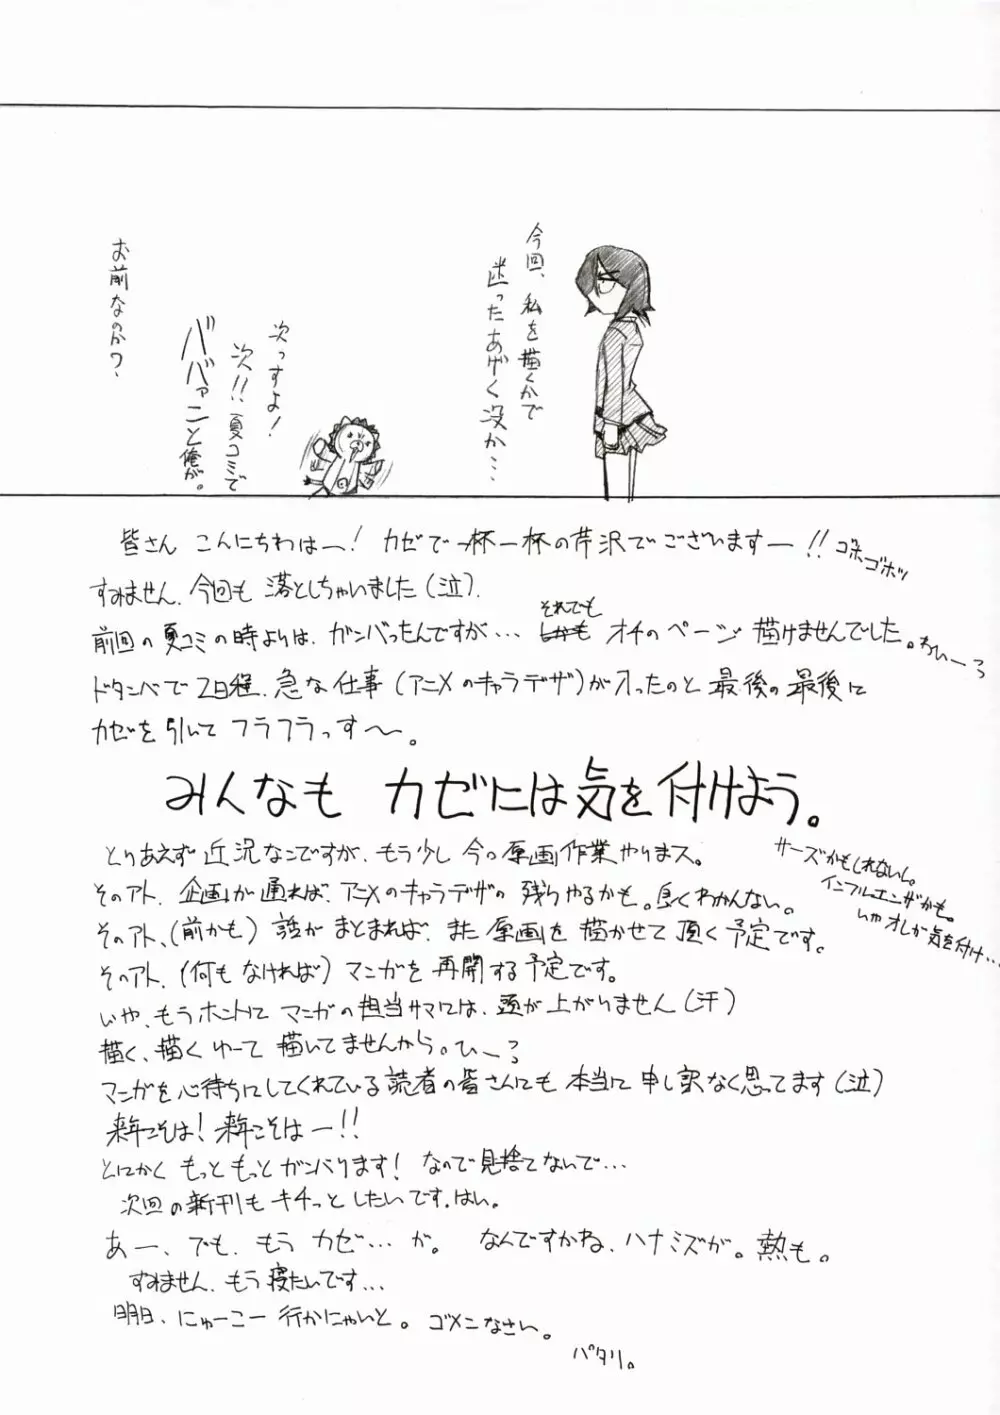 今回、私を描くかで
迷ったあげく没か…
次っすよ!
次!!夏コミで
ババァニと俺が。
お前なのか?
皆さん こんにちわはー! カゼで一杯一杯の芹沢でございますー!!
ゴホゴホッ
すみません、今回も 落としちゃいました(泣)。
前回の夏コミの時よりは、ガンバったんですが… それでも オチのページ 描けませんでした。
ひぃーっ
ドタンバで 2日程、急な仕事(アニメのキャラデザ)が入ったのと 最後の最後に
カゼを引いて フラフラっす〜。
みんなも カゼには気を付けよう。
サーズかもしれないし。
インフルエンザかも。
いや オレが気を付け…
とりあえず 近況なこですが、もう少し 今の原画作業やりまス。
そのアト、企画が通れば、アニメのキャラデザの 残りやるかも。良くわかんない。
そのアト、(前かも) 話が まとまれば、また 原画を 描かせて 頂く予定です。
そのアト、(何もなければ) マンガを 再開する予定です。
いや、もうホントに マンガの担当サマには、頭が上がりません(汗)
描く、描くゆーて 描いてませんから。ひーっ
マンガを心待ちにしてくれている読者の皆さんにも 本当に 申し訳なく思ってます(泣)
来年こそは! 来年こそはー!!
とにかく もっともっとガンバります! なので見捨てないで…
次回の新刊も キチっと したいです。はい。
あー、でも、もう カゼ… が。 なんですかね、ハナミズが。熱も。
すみません、もう寝たいです…
明日、にゅーこー 行かにゃいと。 ゴメンなさい。
パタリ。